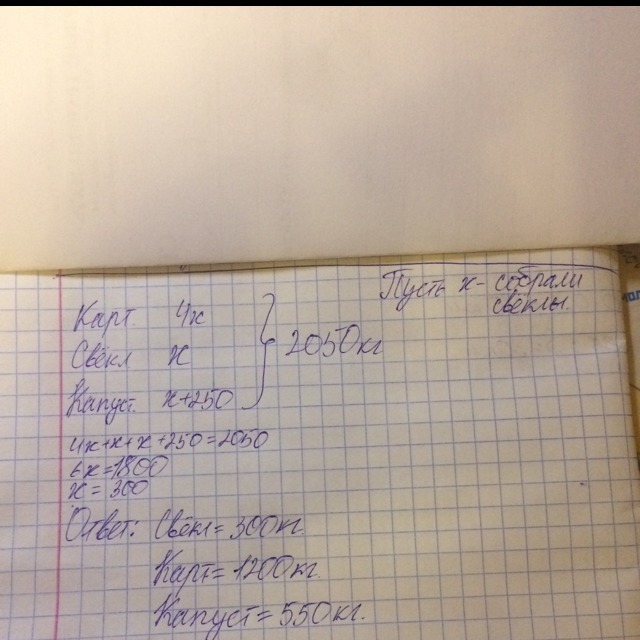 Пусть х - собрали
свёклы.
Карт. 4х
Свёкл х
Капуст. х+250
2050кг
4х+х+х+250=2050
6х=1800
х=300
Ответ: Свёкл=300кг.
Карт=1200кг.
Капуст=550кг.